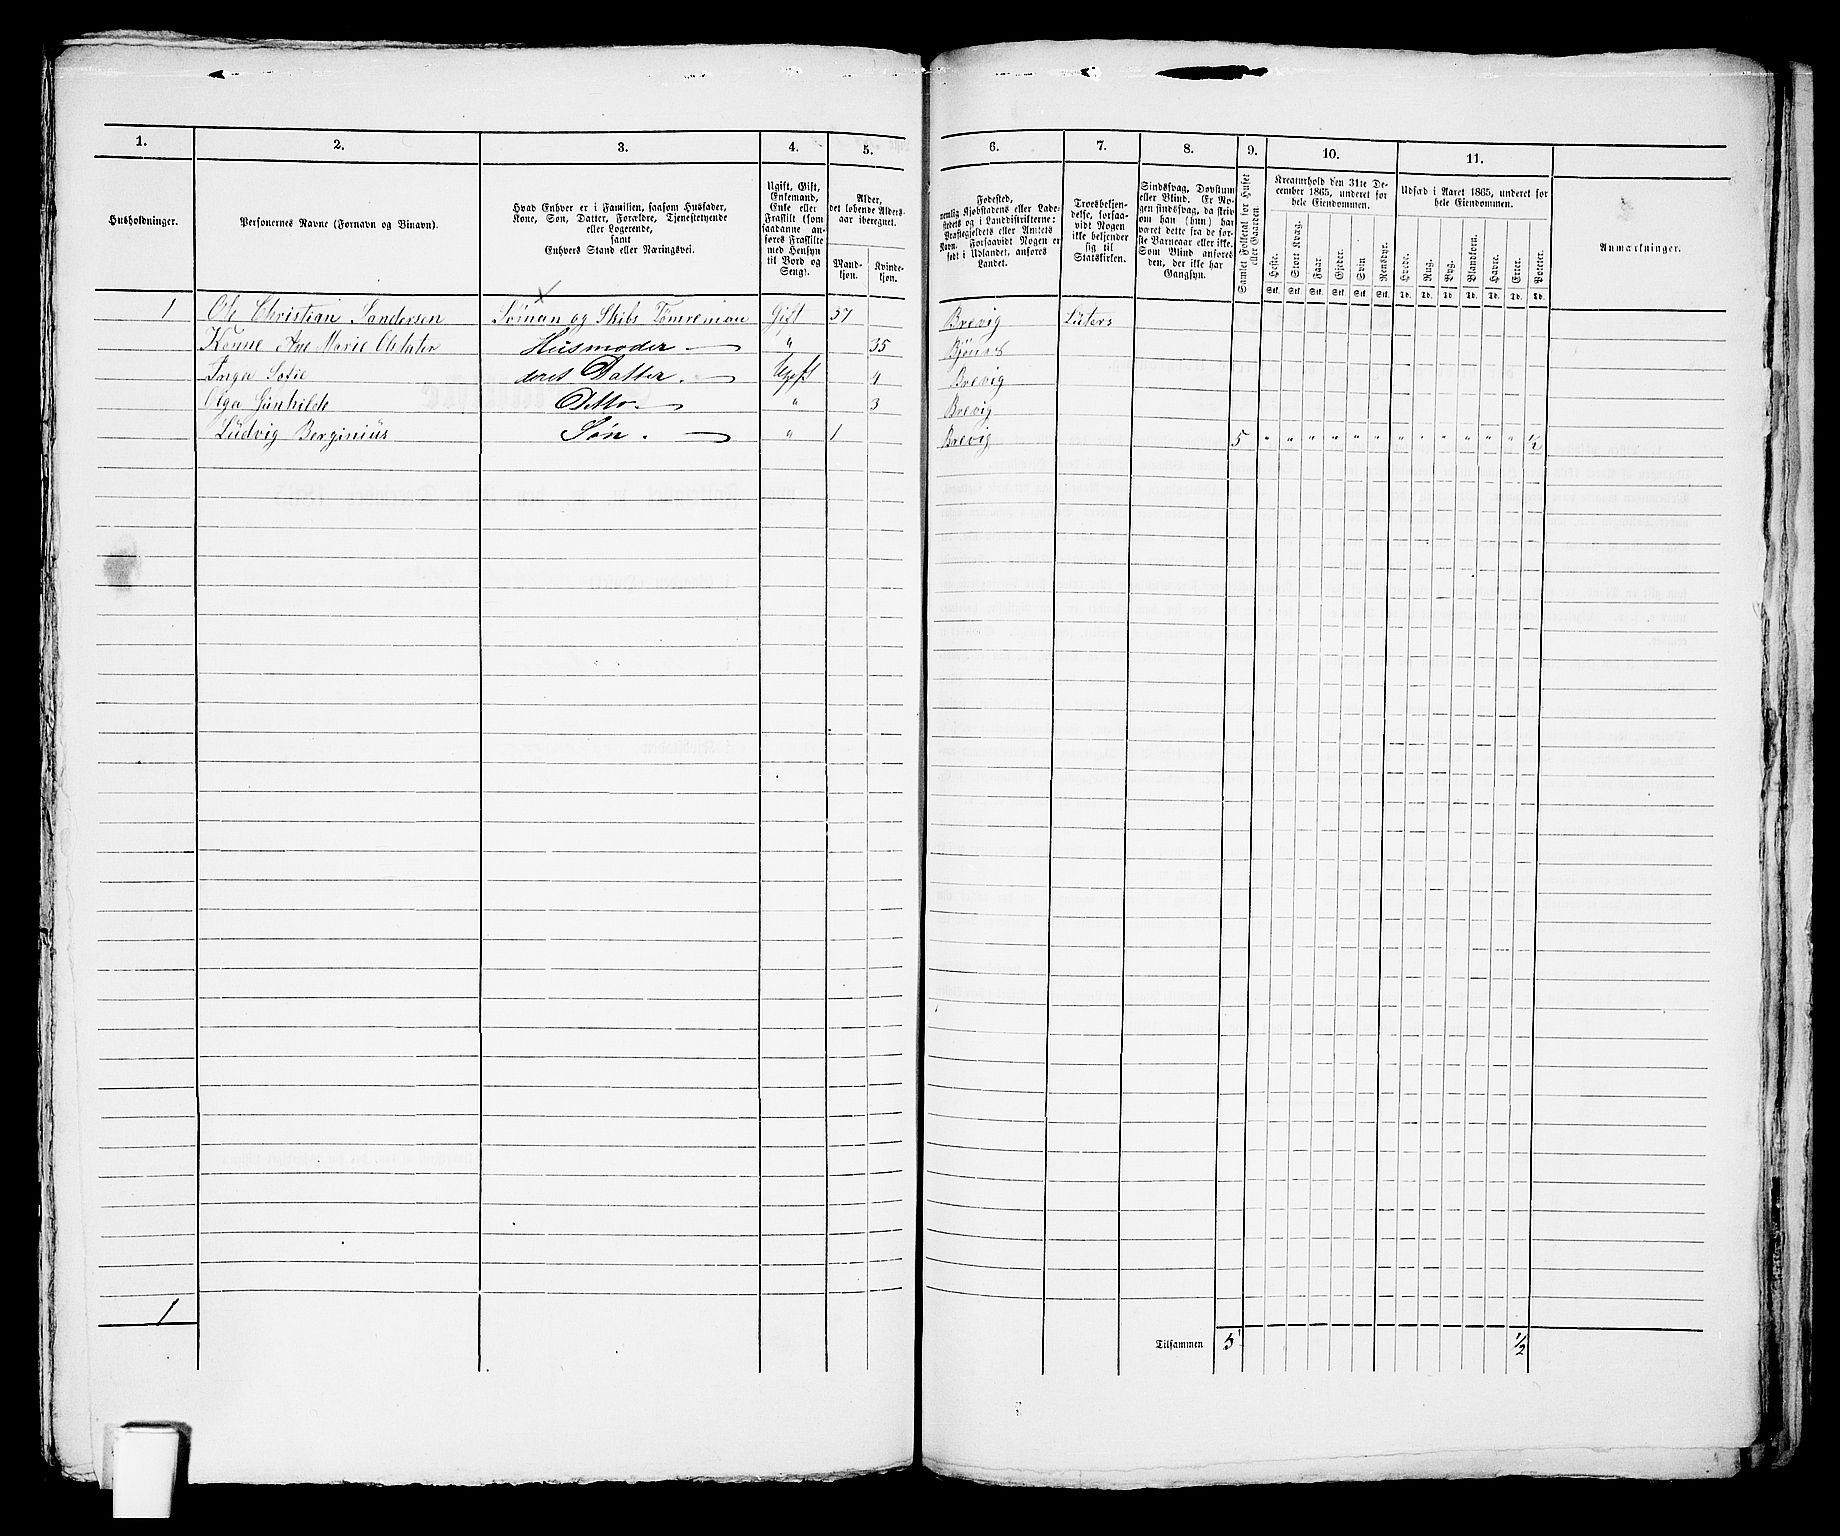 1. 2. 3. 4. 5. 6. 7. 8. 9. 10. 11.
Husholdninger.
Personernes Navne (Fornavn og Binavn).
Hvad Enhver er i Familien, saasom Husfader,
Kone, Søn, Datter, Forældre, Tjenestetyende
eller Logerende,
samt
Enhvers Stand eller Næringsvei.
Ugift, Gift,
Enkemand,
Enke eller
Fraskilt (som
saadanne an-
føres Fraskilte
med Hensyn
til Bord og
Seng).
Alder,
det løbende Alders-
aar iberegnet.
Mand-
kjøn.
Kvinde-
kjøn.
Fødested,
nemlig Kjøbstadens eller Lade-
stedets og i Landdistrikterne:
Præstegjeldets eller Amtets
Navn. Forsaavidt Nogen er
født i Udlandet, anføres
Landet.
Troesbekjen-
delse, forsaa-
vidt Nogen
ikke bekjender
sig til
Statskirken.
Sindssvag, Døvstum
eller Blind. Er No-
gen sindssvag, da skriv
om han (hun) har
været dette fra de før-
ste Barneaar eller ikke.
Som Blind anføres
den, der ikke har
Gangsyn.
Samlet Folketal for Huset
eller Gaarden.
Kreaturhold den 31te De-
cember 1865, underet for
hele Eiendommen.
Heste. Stort Kvæg. Faar. Gjeder. Svin Rensdyr.
Stk. Stk. Stk. Stk. Stk. Stk.
Udsæd i Aaret 1865, underet for
hele Eiendommen.
Hvede. Rug. Byg. Blandkorn. Havre. Erter. Poteter.
Td. Td. Td. Td. Td. Td. Td.
Anmærkninger.
1 Ole Christian Sandersen Søman og Skibs Tømreman Gift 37 Brevig Luters
Konne Ane Marie Husmoder " 35
Inga Sofie deres Datter Ugift 4 Brevig
Olga Gunhilde Ditto " 3 Brevig
Ludvig Berginius Søn " 1 Brevig 5 " " " " " " " " " " " " ½
1 Tilsammen 5 ½